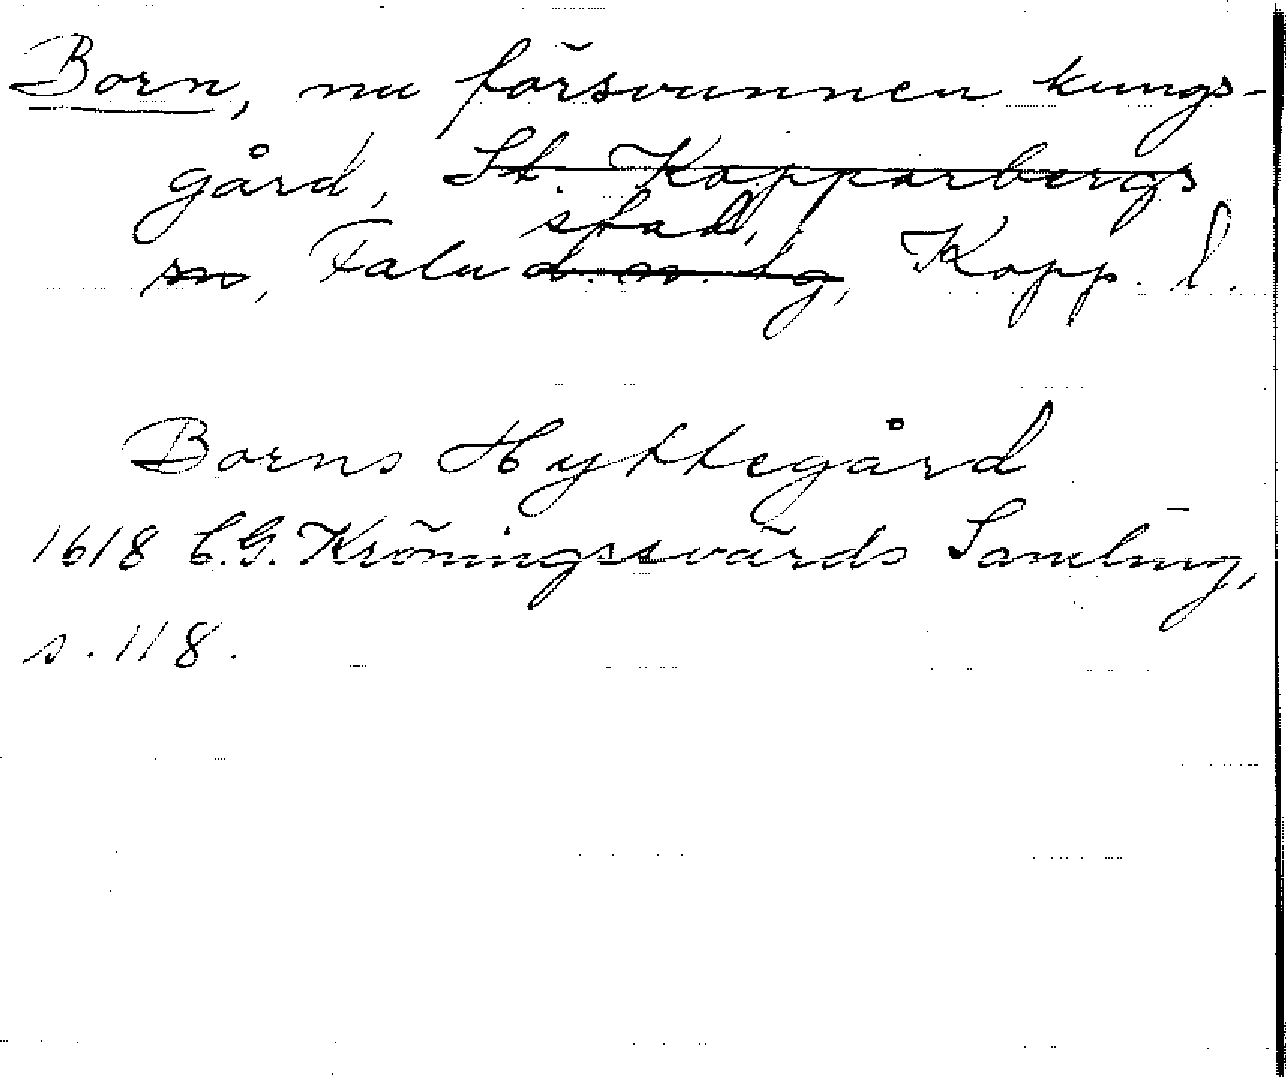 Born, nu försvunnen kungs-
gård, St. Kopparbergs
stad,
sn, Falu d.sv. lg, Kopp. l.
Borns Hyttegård
1618 C.G. Kröningssvärds Samling,
s. 118.